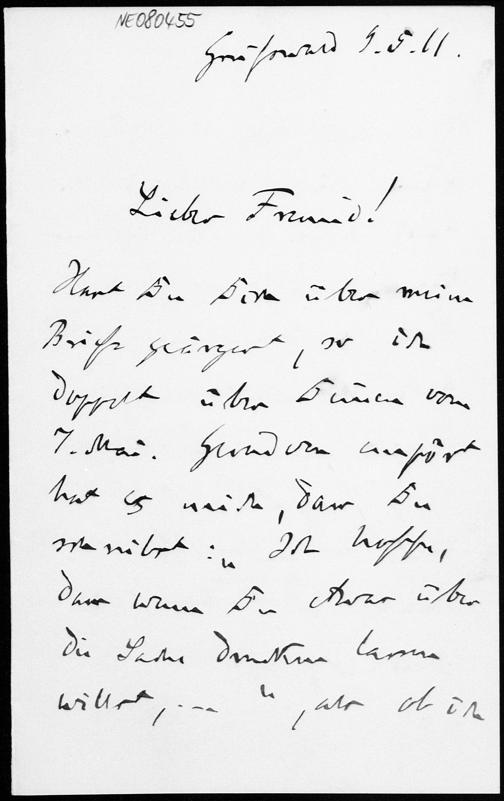 NE080455
Greifswald 9.5.11.
Lieber Freund!
Hast Du Dich über meine
Briefe geärgert, so ich
doppelt über Deinen vom
7. Mai. Geradezu empört
hat es mich, dass Du
schreibst: „Ich hoffe,
dass wenn Du etwas über
die Sache drucken lassen
willst, ... “, als ob ich